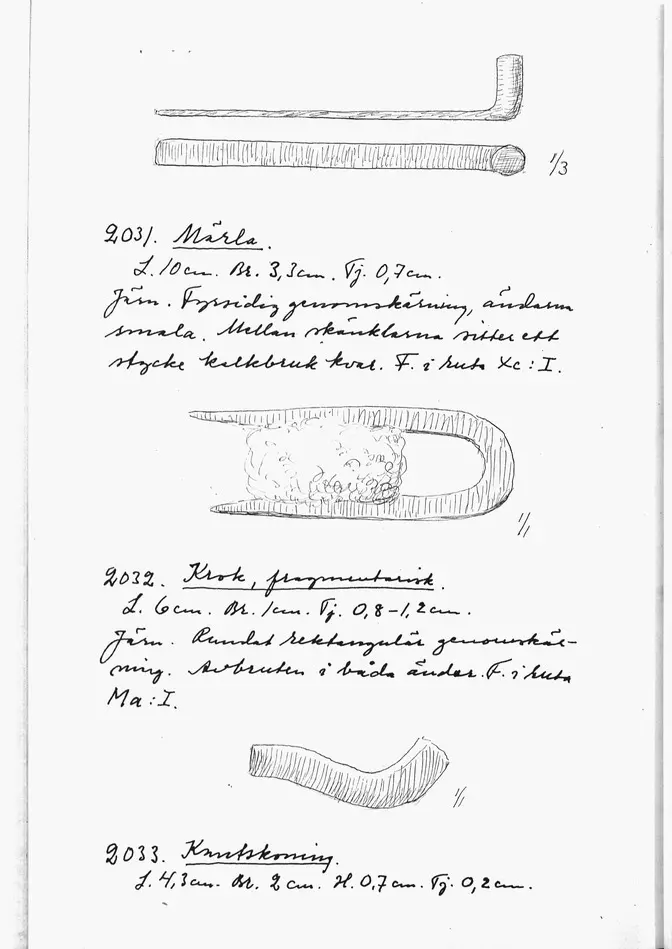 1/3
2031. Märla.
L. 10 cm. Br. 3,3 cm. Tj. 0,7 cm.
Järn. Fyrsidig genomskärning, ändarna
smala. Mellan skänklarna sitter ett
stycke kalkbruk kvar. F. i ruta Xc : I.
1/1
2032. Krok, fragmentarisk.
L. 6 cm. Br. 1 cm. Tj. 0,8-1,2 cm.
Järn. Rundat rektangulär genomskär-
ning. Avbruten i båda ändar. F. i ruta
Ma : I.
1/1
2033. Kantskoning.
L. 4,3 cm. Br. 2 cm. H. 0,7 cm. Tj. 0,2 cm.